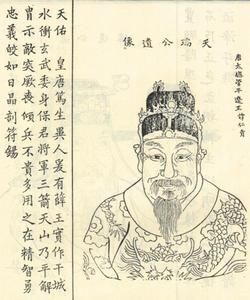 唐太總管平遼王薛仁貴
天瑞公遺像
天佑 皇唐篤生異人爰有薛王實作干城
水衝玄武委身保君將軍三箭天山乃平解
胄示敵突厥喪傾兵不貴多用之在精智勇
忠義皎如日晶剖符錫